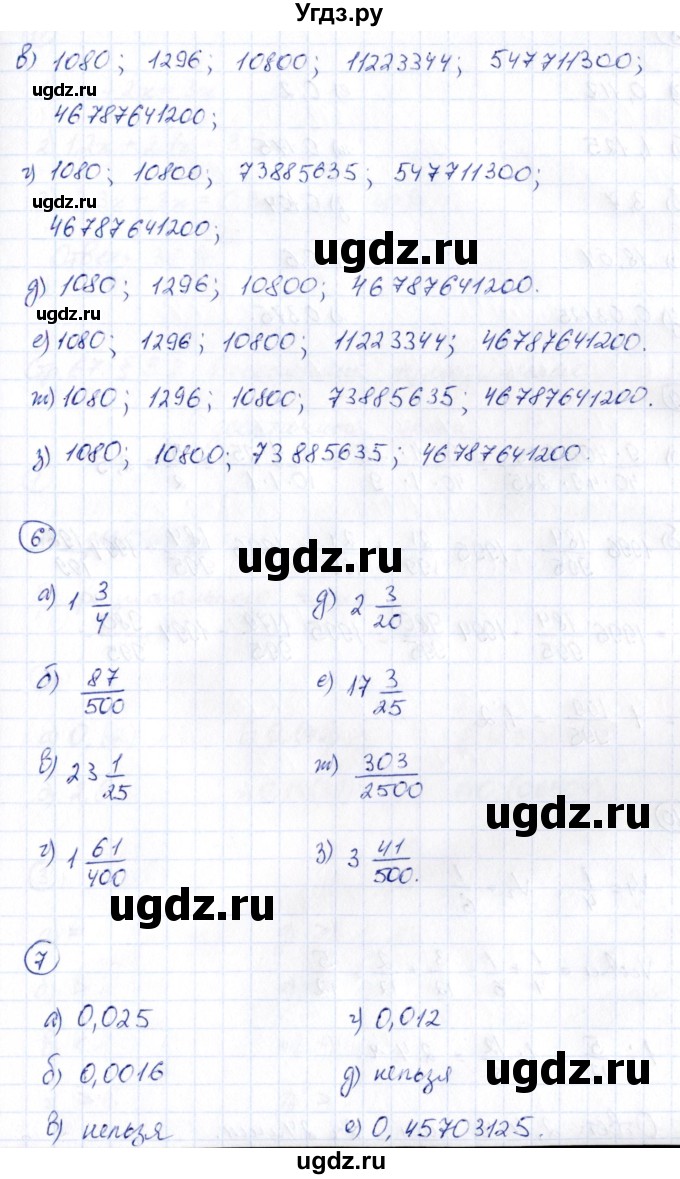 Угдз.ру
в) 1080; 1296; 10800; 11223344; 547711300;
ugdz.ru
46787641200;
г) 1080; 10800; 73885635; 547711300;
ugdz.ru
46787641200;
ugdz.ru
д) 1080; 1296; 10800; 46787641200.
ugdz.ru
е) 1080; 1296; 10800; 11223344; 46787641200.
ж) 1080; 1296; 10800; 73885635; 46787641200.
з) 1080; 10800; 73885635; 46787641200.
6
ugdz.ru
а) 1 3/4 д) 2 3/20
б) 87/500 е) 17 3/25
в) 23 1/25 ж) 303/2500
ugdz.ru
г) 1 61/400 з) 3 41/500.
ugdz.ru
7
а) 0,025 г) 0,012
б) 0,0016 д) нельзя
ugdz.ru
в) нельзя е) 0,45703125.
ugdz.ru